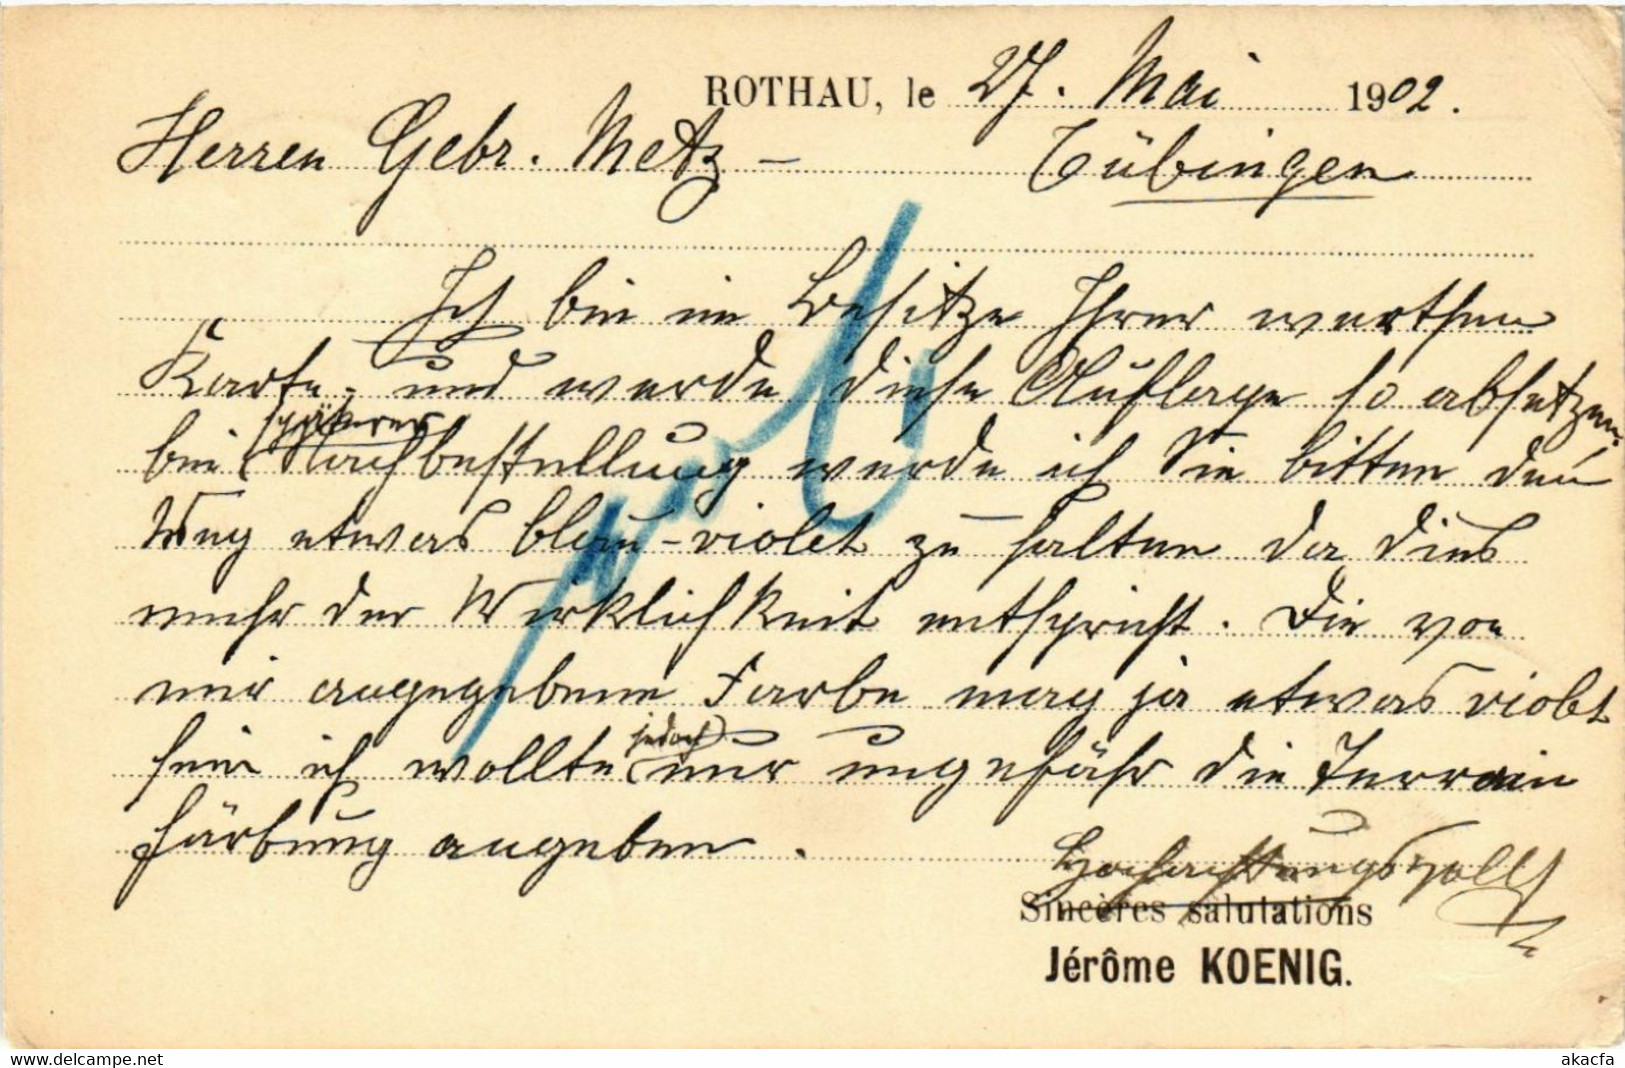 ROTHAU, le 27. Mai 1902.
Herren Gebr. Metz – Tübingen
Ich bin im Besitze Ihrer werthen
Karte – und werde diese Auflage so absetzen,
bei späterer Nachbestellung werde ich Sie bitten den
Weg etwas blau-violet zu halten da dies
mehr der Wirklichkeit entspricht. Die von
mir angegebene Farbe mag ja etwas violet
sein ich wollte jedoch nur ungefähr die Terrain
färbung angeben.
Hochachtungsvoll
Sincères salutations
Jérôme KOENIG.
www.delcampe.net
akacfa